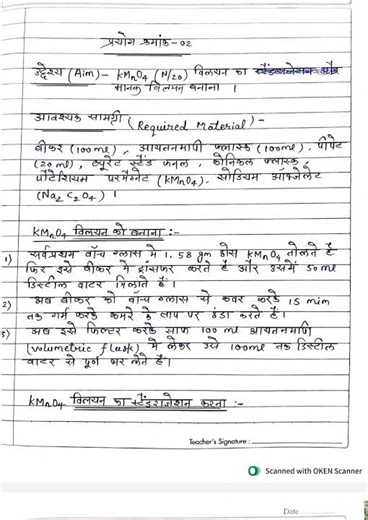 प्रयोग क्रमांक-02
उद्देश्य (Aim) - KMnO4 (N/20) विलयन का
मानक विलयन बनाना ।
आवश्यक सामग्री (Required Material) -
बीकर (100 ml), आयतनमापी फ्लास्क (100ml), पीपेट
(20 ml), ब्यूरेट स्टैंड फनल, कोनिकल फ्लास्क,
पोटेशियम परमैग्नेट (KMnO4), सोडियम ऑक्जेलेट
(Na2 C2O4) ।
KMnO4 विलयन को बनाना :-
1) सर्वप्रथम वॉच ग्लास में 1.58 gm ठोस KMnO4 तोलते है
फिर इसे बीकर में ट्रांसफर करते है और उसमें 50ml
डिस्टील वाटर मिलाते है।
2) अब बीकर को वॉच ग्लास से कवर करके 15 min
तक गर्म करके कमरे के ताप पर ठंडा करते है।
3) अब इसे फिल्टर करके साफ 100 ml आयतनमापी
(volumetric flask) में लेकर उसे 100ml तक डिस्टील
वाटर से पूर्ण भर लेते है।
KMnO4 विलयन का स्टैंडराजेशन करना :-
Teacher's Signature :
Scanned with OKEN Scanner
Date